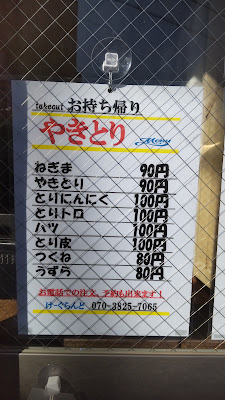 takeout お持ち帰り
やきとり Menu
ねぎま 90円
やきとり 90円
とりにんにく 100円
とりトロ 100円
ハツ 100円
とり皮 100円
つくね 80円
うずら 80円
お電話での注文、予約も出来ます！
げーぐらんど 070-3825-7065